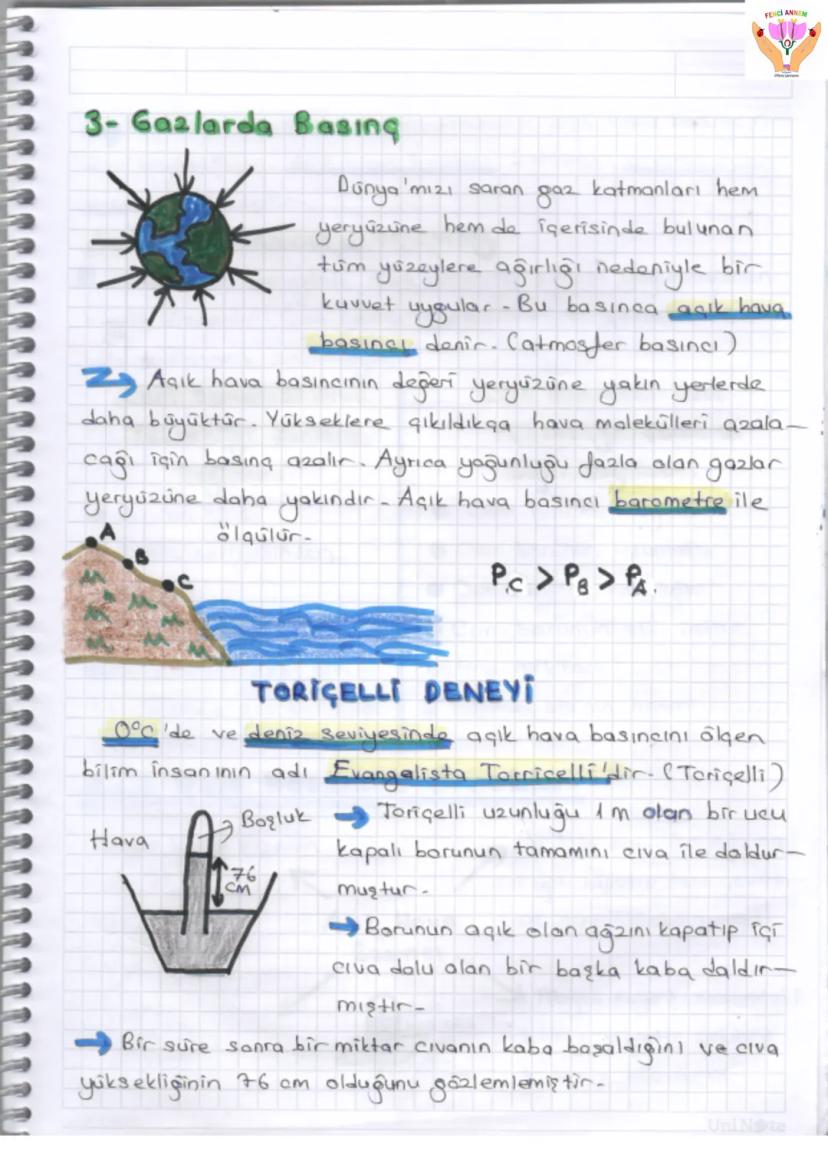 FENCİ ANNEM
3- Gazlarda Basınç
Dünya'mızı saran gaz katmanları hem
yeryüzüne hem de içerisinde bulunan
tüm yüzeylere ağırlığı nedeniyle bir
kuvvet uygular. Bu basınca açık hava
basıncı denir. (atmosfer basıncı)
Açık hava basıncının değeri yeryüzüne yakın yerlerde
daha büyüktür. Yükseklere çıkıldıkça hava molekülleri azala-
cağı için basınç azalır. Ayrıca yoğunluğu fazla olan gazlar
yeryüzüne daha yakındır. Açık hava basıncı barometre ile
ölçülür.
A
B
C
P_C > P_B > P_A.
TORİÇELLİ DENEYİ
0°C'de ve deniz seviyesinde açık hava basıncını ölçen
bilim insanının adı Evangelista Torricelli'dir. (Toriçelli)
Hava
Boşluk
76
cm
→ Toriçelli uzunluğu 1 m olan bir ucu
kapalı borunun tamamını cıva ile doldur-
muştur.
→ Borunun açık olan ağzını kapatıp içi
cıva dolu olan bir başka kaba daldır-
mıştır.
→ Bir süre sonra bir miktar cıvanın kaba boşaldığını ve cıva
yüksekliğinin 76 cm olduğunu gözlemlemiştir.
UniNote